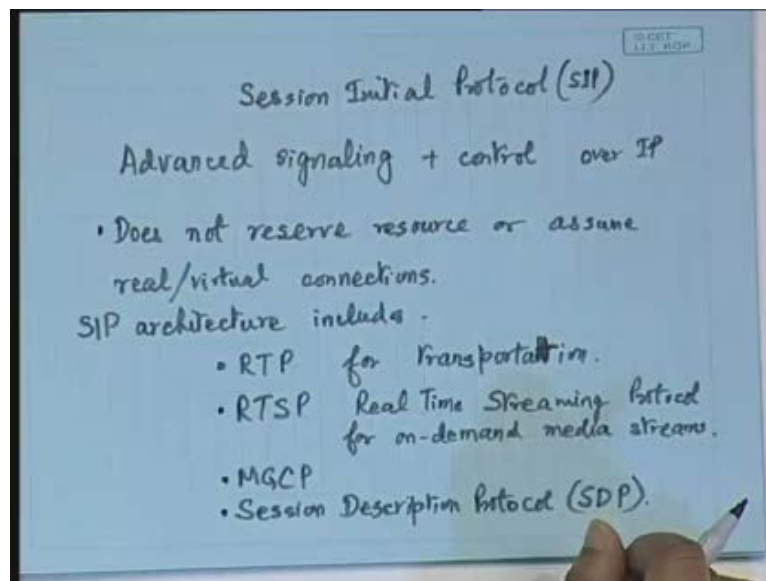 © CET
I.I.T. KGP
Session Initial Protocol (SIP)
Advanced signaling + control over IP
• Does not reserve resource or assume
real/virtual connections.
SIP architecture includes -
• RTP for Transportation.
• RTSP Real Time Streaming Protocol
for on-demand media streams.
• MGCP
• Session Description Protocol (SDP).